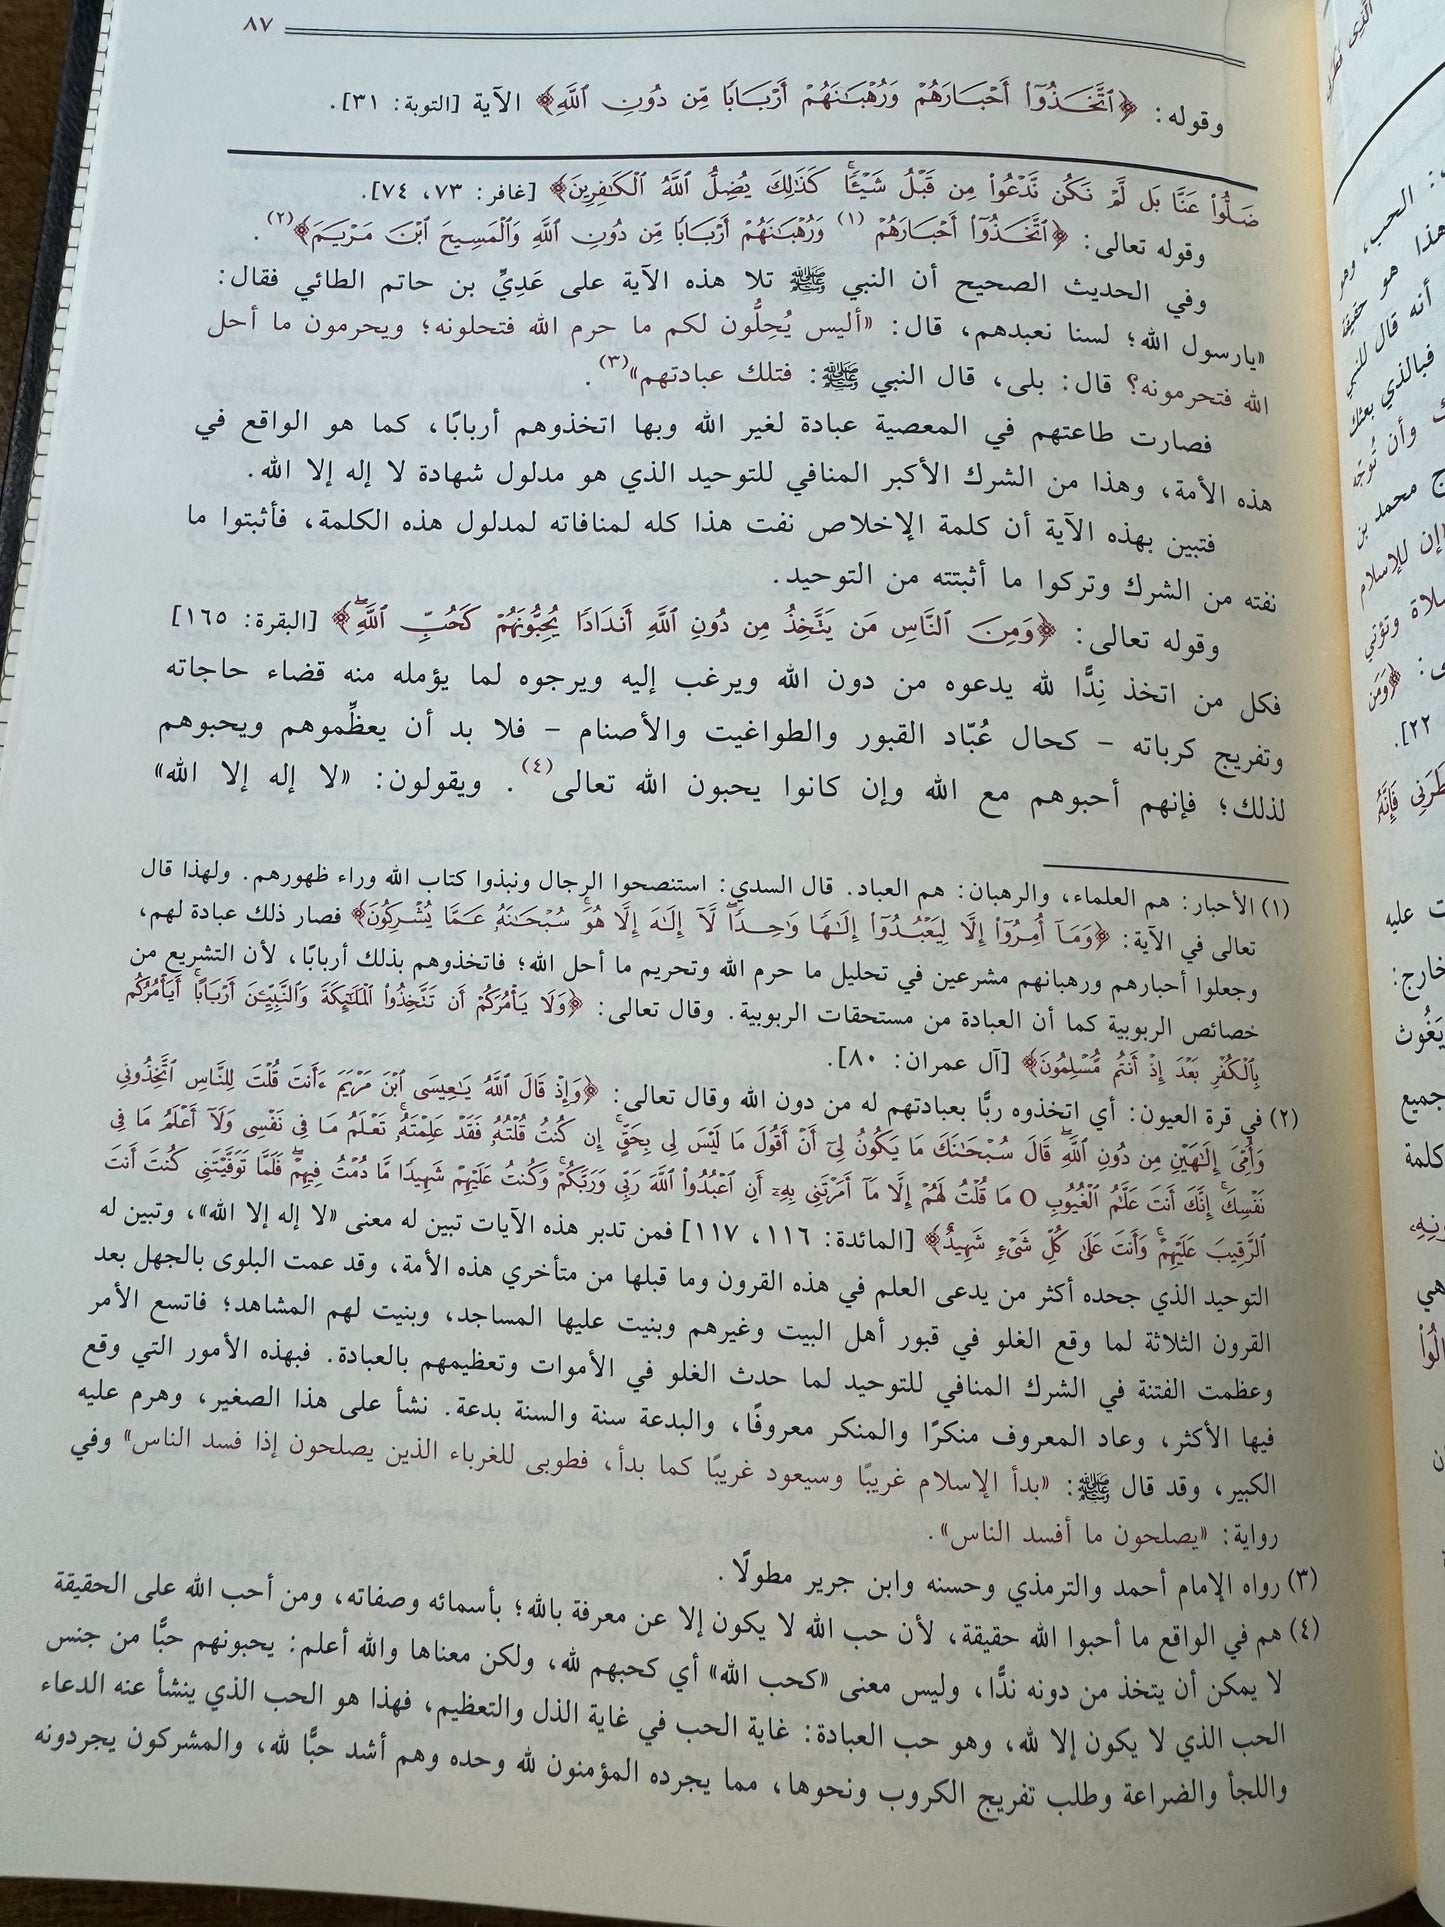 ٨٧
وقوله: ﴿ٱتَّخَذُوٓا۟ أَحْبَارَهُمْ وَرُهْبَٰنَهُمْ أَرْبَابًا مِّن دُونِ ٱللَّهِ﴾ الآية [التوبة: ٣١].
ضَلُّوا۟ عَنَّا بَل لَّمْ نَكُن نَّدْعُوا۟ مِن قَبْلُ شَيْـًٔا ۚ كَذَٰلِكَ يُضِلُّ ٱللَّهُ ٱلْكَٰفِرِينَ﴾ [غافر: ٧٣، ٧٤].
وقوله تعالى: ﴿ٱتَّخَذُوٓا۟ أَحْبَارَهُمْ (١) وَرُهْبَٰنَهُمْ أَرْبَابًا مِّن دُونِ ٱللَّهِ وَٱلْمَسِيحَ ٱبْنَ مَرْيَمَ﴾(٢).
وفي الحديث الصحيح أن النبي ﷺ تلا هذه الآية على عَدِيِّ بن حاتم الطائي فقال:
«يارسول الله؛ لسنا نعبدهم، قال: «أليس يُحِلُّون لكم ما حرم الله فتحلونه؛ ويحرمون ما أحل
الله فتحرمونه؟ قال: بلى، قال النبي ﷺ: فتلك عبادتهم»(٣).
فصارت طاعتهم في المعصية عبادة لغير الله وبها اتخذوهم أربابًا، كما هو الواقع في
هذه الأمة، وهذا من الشرك الأكبر المنافي للتوحيد الذي هو مدلول شهادة لا إله إلا الله.
فتبين بهذه الآية أن كلمة الإخلاص نفت هذا كله لمنافاته لمدلول هذه الكلمة، فأثبتوا ما
نفته من الشرك وتركوا ما أثبتته من التوحيد.
وقوله تعالى: ﴿وَمِنَ ٱلنَّاسِ مَن يَتَّخِذُ مِن دُونِ ٱللَّهِ أَندَادًا يُحِبُّونَهُمْ كَحُبِّ ٱللَّهِ ۖ﴾ [البقرة: ١٦٥]
فكل من اتخذ نِدًّا لله يدعوه من دون الله ويرغب إليه ويرجوه لما يؤمله منه قضاء حاجاته
وتفريج كرباته – كحال عُبّاد القبور والطواغيت والأصنام – فلا بد أن يعظِّموهم ويحبوهم
لذلك؛ فإنهم أحبوهم مع الله وإن كانوا يحبون الله تعالى(٤). ويقولون: «لا إله إلا الله»
(١) الأحبار: هم العلماء، والرهبان: هم العباد. قال السدي: استنصحوا الرجال ونبذوا كتاب الله وراء ظهورهم. ولهذا قال
تعالى في الآية: ﴿وَمَآ أُمِرُوٓا۟ إِلَّا لِيَعْبُدُوٓا۟ إِلَٰهًا وَٰحِدًا ۖ لَّآ إِلَٰهَ إِلَّا هُوَ ۚ سُبْحَٰنَهُۥ عَمَّا يُشْرِكُونَ﴾ فصار ذلك عبادة لهم،
وجعلوا أحبارهم ورهبانهم مشرعين في تحليل ما حرم الله وتحريم ما أحل الله؛ فاتخذوهم بذلك أربابًا، لأن التشريع من
خصائص الربوبية كما أن العبادة من مستحقات الربوبية. وقال تعالى: ﴿وَلَا يَأْمُرَكُمْ أَن تَتَّخِذُوا۟ ٱلْمَلَٰٓئِكَةَ وَٱلنَّبِيِّـۧنَ أَرْبَابًا ۗ أَيَأْمُرُكُم
بِٱلْكُفْرِ بَعْدَ إِذْ أَنتُم مُّسْلِمُونَ﴾ [آل عمران: ٨٠].
(٢) في قرة العيون: أي اتخذوه ربًّا بعبادتهم له من دون الله وقال تعالى: ﴿وَإِذْ قَالَ ٱللَّهُ يَٰعِيسَى ٱبْنَ مَرْيَمَ ءَأَنتَ قُلْتَ لِلنَّاسِ ٱتَّخِذُونِى
وَأُمِّىَ إِلَٰهَيْنِ مِن دُونِ ٱللَّهِ ۖ قَالَ سُبْحَٰنَكَ مَا يَكُونُ لِىٓ أَنْ أَقُولَ مَا لَيْسَ لِى بِحَقٍّ ۚ إِن كُنتُ قُلْتُهُۥ فَقَدْ عَلِمْتَهُۥ ۚ تَعْلَمُ مَا فِى نَفْسِى وَلَآ أَعْلَمُ مَا فِى
نَفْسِكَ ۚ إِنَّكَ أَنتَ عَلَّٰمُ ٱلْغُيُوبِ ○ مَا قُلْتُ لَهُمْ إِلَّا مَآ أَمَرْتَنِى بِهِۦٓ أَنِ ٱعْبُدُوا۟ ٱللَّهَ رَبِّى وَرَبَّكُمْ ۚ وَكُنتُ عَلَيْهِمْ شَهِيدًا مَّا دُمْتُ فِيهِمْ ۖ فَلَمَّا تَوَفَّيْتَنِى كُنتَ أَنتَ
ٱلرَّقِيبَ عَلَيْهِمْ ۚ وَأَنتَ عَلَىٰ كُلِّ شَىْءٍ شَهِيدٌ﴾ [المائدة: ١١٦، ١١٧] فمن تدبر هذه الآيات تبين له معنى «لا إله إلا الله»، وتبين له
التوحيد الذي جحده أكثر من يدعى العلم في هذه القرون وما قبلها من متأخري هذه الأمة، وقد عمت البلوى بالجهل بعد
القرون الثلاثة لما وقع الغلو في قبور أهل البيت وغيرهم وبنيت عليها المساجد، وبنيت لهم المشاهد؛ فاتسع الأمر
وعظمت الفتنة في الشرك المنافي للتوحيد لما حدث الغلو في الأموات وتعظيمهم بالعبادة. فبهذه الأمور التي وقع
فيها الأكثر، وعاد المعروف منكرًا والمنكر معروفًا، والبدعة سنة والسنة بدعة. نشأ على هذا الصغير، وهرم عليه
الكبير، وقد قال ﷺ: «بدأ الإسلام غريبًا وسيعود غريبًا كما بدأ، فطوبى للغرباء الذين يصلحون إذا فسد الناس» وفي
رواية: «يصلحون ما أفسد الناس».
(٣) رواه الإمام أحمد والترمذي وحسنه وابن جرير مطولًا.
(٤) هم في الواقع ما أحبوا الله حقيقة، لأن حب الله لا يكون إلا عن معرفة بالله؛ بأسمائه وصفاته، ومن أحب الله على الحقيقة
لا يمكن أن يتخذ من دونه ندًّا، وليس معنى «كحب الله» أي كحبهم لله، ولكن معناها والله أعلم: يحبونهم حبًّا من جنس
الحب الذي لا يكون إلا لله، وهو حب العبادة: غاية الحب في غاية الذل والتعظيم، فهذا هو الحب الذي ينشأ عنه الدعاء
واللجأ والضراعة وطلب تفريج الكروب ونحوها، مما يجرده المؤمنون لله وحده وهم أشد حبًّا لله، والمشركون يجردونه